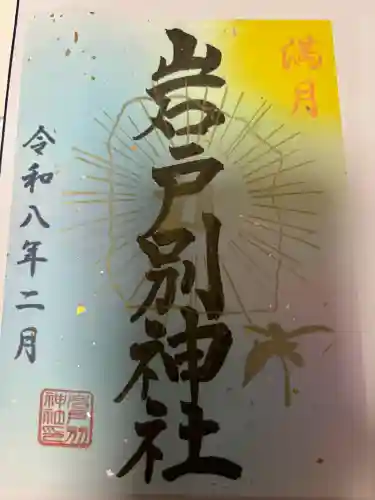 満月
岩戸別神社
令和八年二月
岩戸別
神社印